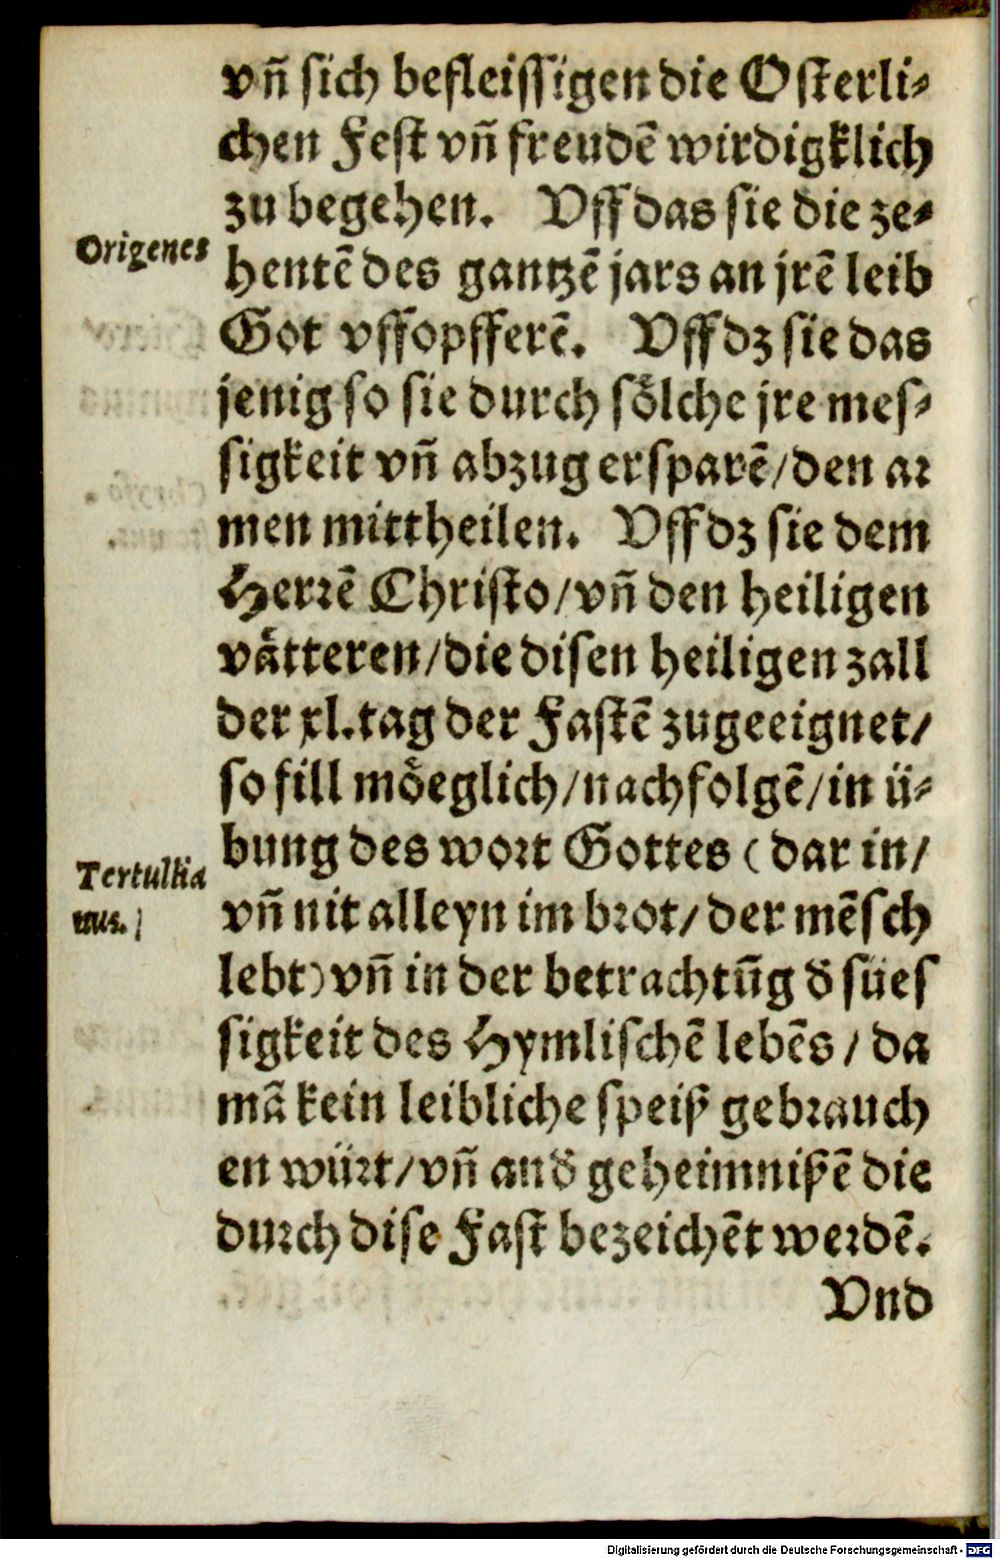 vñ sich befleissigen die Osterli⸗
chen Fest vñ freudẽ wirdigklich
zu begehen. Vff das sie die ze⸗
Origenes
hentẽ des gantzẽ jars an jrẽ leib
Got vffopfferẽ. Vff dz sie das
jenig so sie durch soͤlche jre mes⸗
sigkeit vñ abzug ersparẽ/den ar
men mittheilen. Vff dz sie dem
Herrẽ Christo/vñ den heiligen
vaͤtteren/die disen heiligen zall
der xl.tag der Fastẽ zugeeignet/
so fill moͤeglich/nachfolgẽ/in ü⸗
bung des wort Gottes (dar in/
Tertullia
nus.
vñ nit alleyn im brot/der mẽsch
lebt) vñ in der betrachtũg d̕ sües
sigkeit des Hymlischẽ lebẽs/da
mã kein leibliche speiß gebrauch
en würt/vñ and̕ geheimnißẽ die
durch dise Fast bezeichẽt werdẽ.
Vnd
Digitalisierung gefördert durch die Deutsche Forschungsgemeinschaft - DFG